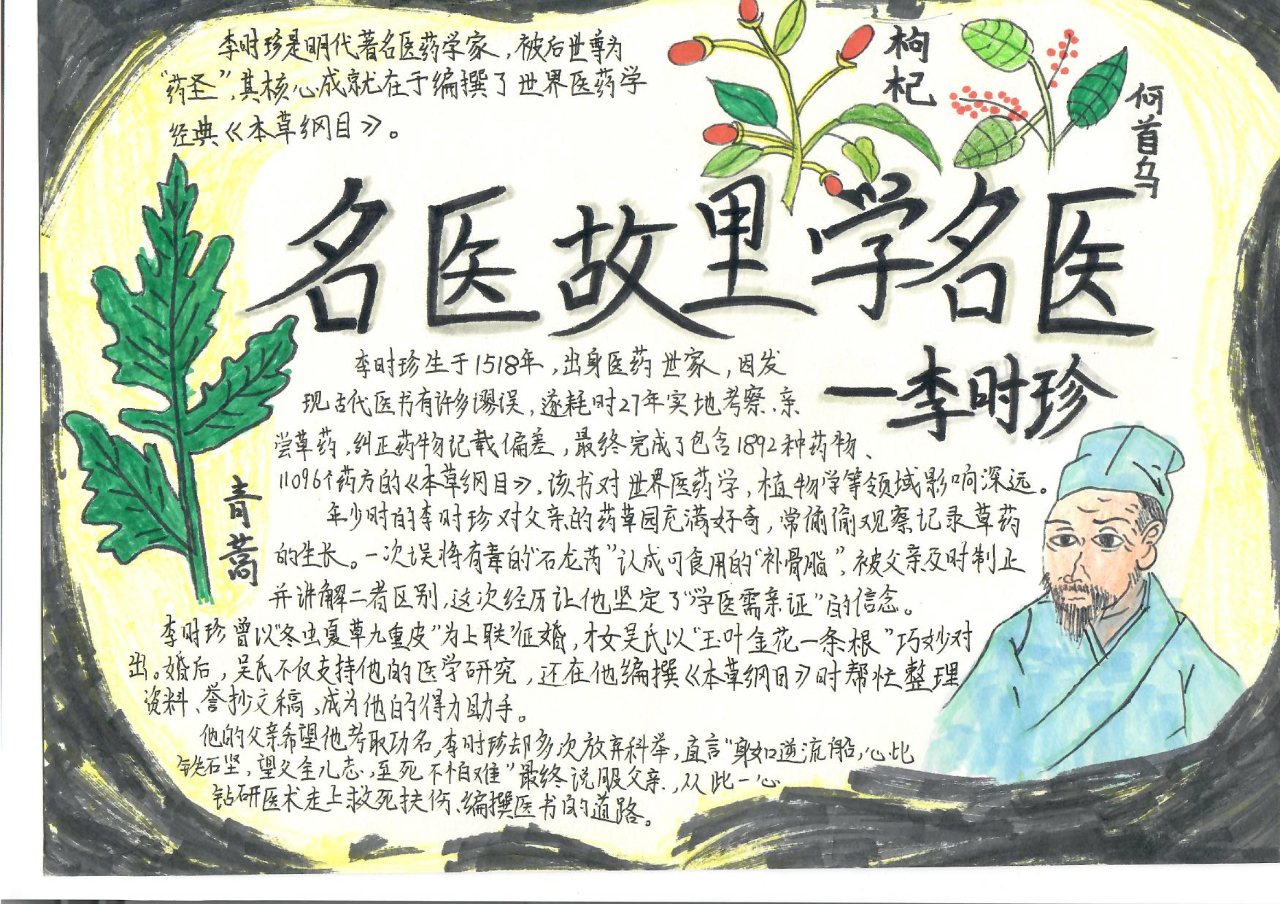 李时珍是明代著名医药学家,被后世尊为
“药圣”,其核心成就在于编撰了世界医药学
经典《本草纲目》。
枸杞
何首乌
名医故里学名医
—李时珍
青蒿
李时珍生于1518年,出身医药世家,因发
现古代医书有许多谬误,遂耗时27年实地考察、亲
尝草药,纠正药物记载偏差,最终完成了包含1892种药物、
11096个药方的《本草纲目》,该书对世界医药学,植物学等领域影响深远。
年少时的李时珍对父亲的药草园充满好奇,常偷偷观察记录草药
的生长。一次误将有毒的“石龙芮”认成可食用的“补骨脂”,被父亲及时制止
并讲解二者区别,这次经历让他坚定了“学医需亲证”的信念。
李时珍曾以“冬虫夏草九重皮”为上联征婚,才女吴氏以“玉叶金花一条根”巧妙对
出。婚后,吴氏不仅支持他的医学研究,还在他编撰《本草纲目》时帮忙整理
资料、誊抄文稿,成为他的得力助手。
他的父亲希望他考取功名,李时珍却多次放弃科举,直言“身如逆流船,心比
铁石坚,望父全儿志,至死不怕难”最终说服父亲,从此一心
钻研医术走上救死扶伤、编撰医书的道路。